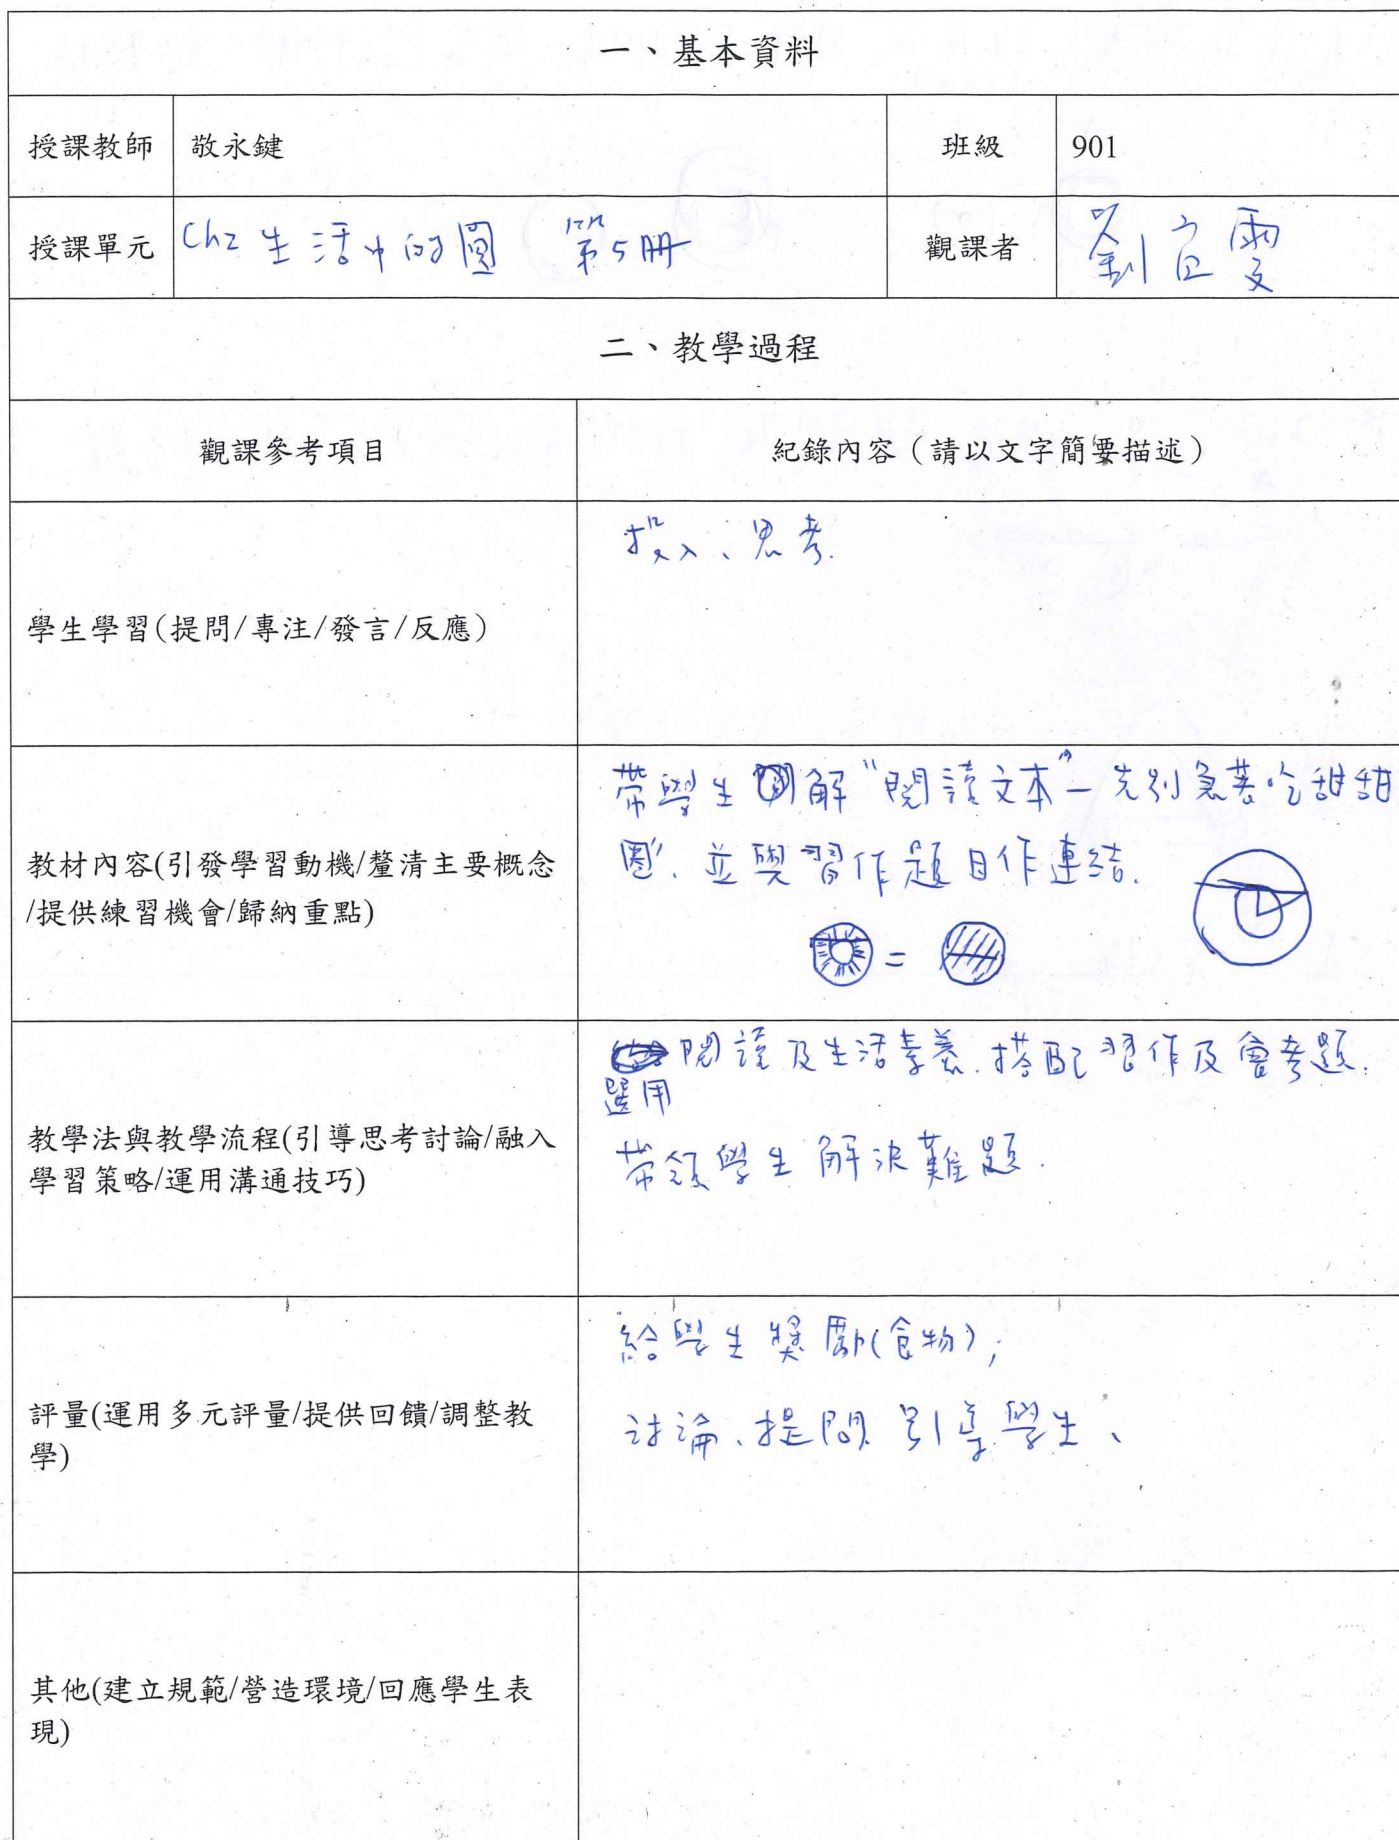 一、基本資料
授課教師 敬永鍵 班級 901
授課單元 Ch2 生活中的圓 第5冊 觀課者 劉宜雯
二、教學過程
觀課參考項目 紀錄內容（請以文字簡要描述）
學生學習(提問/專注/發言/反應) 投入、思考.
教材內容(引發學習動機/釐清主要概念
/提供練習機會/歸納重點)
帶學生 解"閱讀文本"—先別急著吃甜甜
圈". 並與習作題目作連結.
=
教學法與教學流程(引導思考討論/融入
學習策略/運用溝通技巧)
選用閱讀及生活素養. 搭配習作及會考題.
帶領學生解決難題.
評量(運用多元評量/提供回饋/調整教
學)
給學生獎勵(食物);
討論、提問 引導學生、
其他(建立規範/營造環境/回應學生表
現)